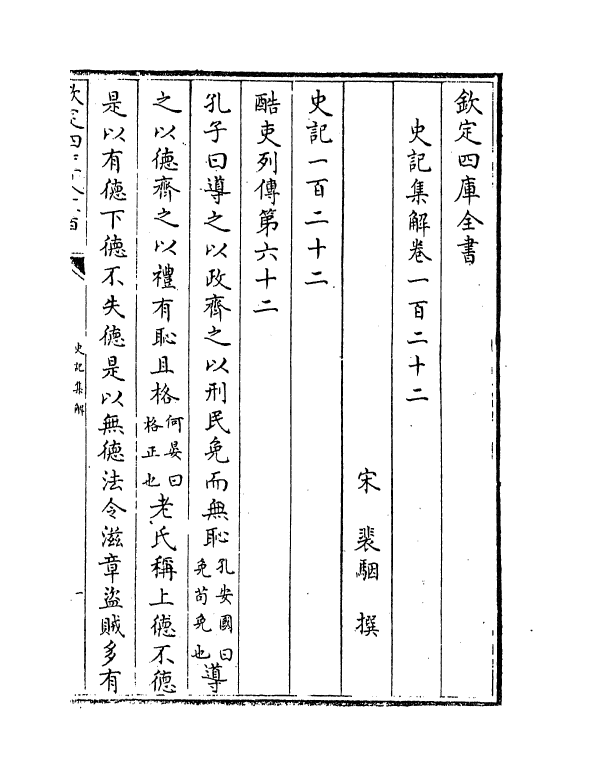 欽定四庫全書
史記集解卷一百二十二
宋 裴駰 撰
史記一百二十二
酷吏列傳第六十二
孔子曰導之以政齊之以刑民免而無恥孔安國曰免苟免也導
之以德齊之以禮有恥且格何晏曰格正也老氏稱上德不德
是以有德下德不失德是以無德法令滋章盜賊多有
史記集解
一